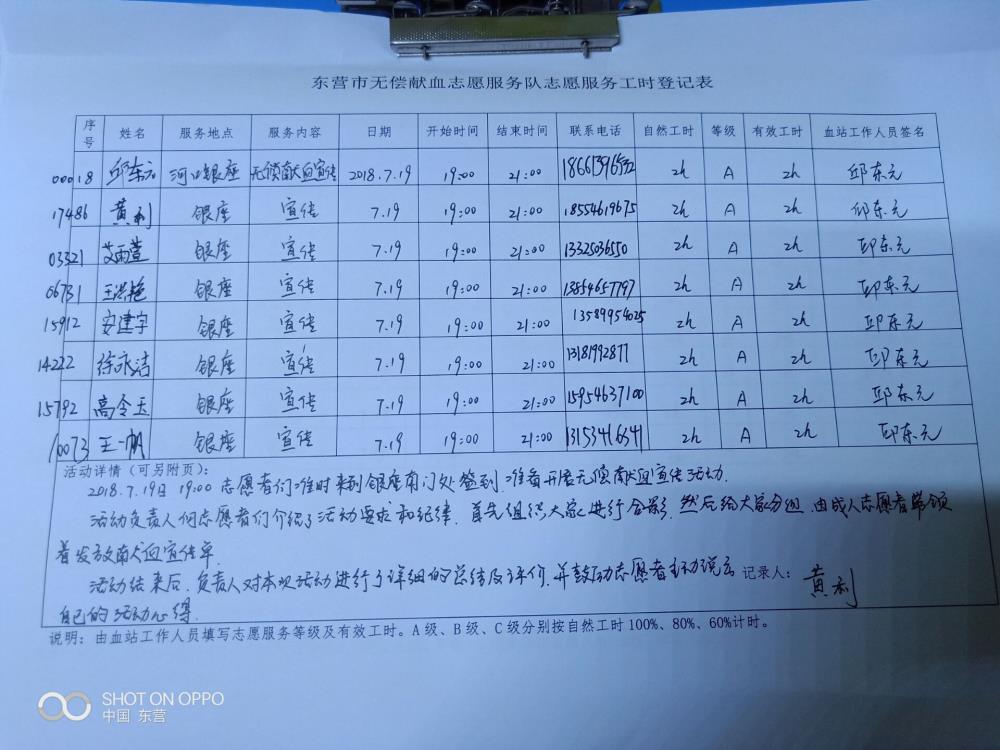 东营市无偿献血志愿服务队志愿服务工时登记表
序号 姓名 服务地点 服务内容 日期 开始时间 结束时间 联系电话 自然工时 等级 有效工时 血站工作人员签名
00018 邱东元 河口银座 无偿献血宣传 2018.7.19 19:00 21:00 18661396532 2h A 2h 邱东元
17486 黄利 银座 宣传 7.19 19:00 21:00 18554619675 2h A 2h 邱东元
03321 艾雨萱 银座 宣传 7.19 19:00 21:00 13325036550 2h A 2h 邱东元
06731 王洪艳 银座 宣传 7.19 19:00 21:00 13854657797 2h A 2h 邱东元
15912 安建宇 银座 宣传 7.19 19:00 21:00 13589954025 2h A 2h 邱东元
14222 徐永洁 银座 宣传 7.19 19:00 21:00 13181992877 2h A 2h 邱东元
15792 高令玉 银座 宣传 7.19 19:00 21:00 15954637100 2h A 2h 邱东元
10073 王一帆 银座 宣传 7.19 19:00 21:00 13153416341 2h A 2h 邱东元
活动详情（可另附页）：
2018.7.19日 19:00 志愿者们准时来到银座南门处签到.准备开展无偿献血宣传活动.
活动负责人向志愿者们介绍了活动要求和纪律.首先组织大家进行合影.然后给大家分组.由成人志愿者带领
着发放献血宣传单.
活动结束后.负责人对本次活动进行了详细的总结及评价.并鼓励志愿者主动说出 记录人：黄利
自己的活动心得.
说明：由血站工作人员填写志愿服务等级及有效工时。A级、B级、C级分别按自然工时100%、80%、60%计时。
SHOT ON OPPO
中国 东营